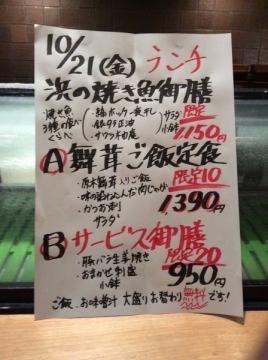 10/21(金) ランチ
浜の焼き魚御膳
・焼き魚
3種の食べ
くらべ
・縞ホッケ一夜干し
・銀ダラ正油
・サワラ柚庵
サラダ
小鉢
限定
1150円
A 舞茸ご飯定食
・原木舞茸入りご飯
・味の染みこんだ肉じゃが
・かつお刺
サラダ
限定10
1390円
B サービス御膳
・豚バラ生姜焼き
・おまかせ刺盛
小鉢
限定20
950円
ご飯、お味噌汁 大盛りお替わり 無料です!